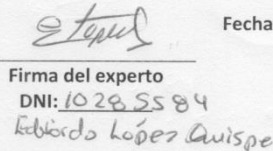 Fecha
Firma del experto
DNI: 10285584
Edbiordo López Quispe